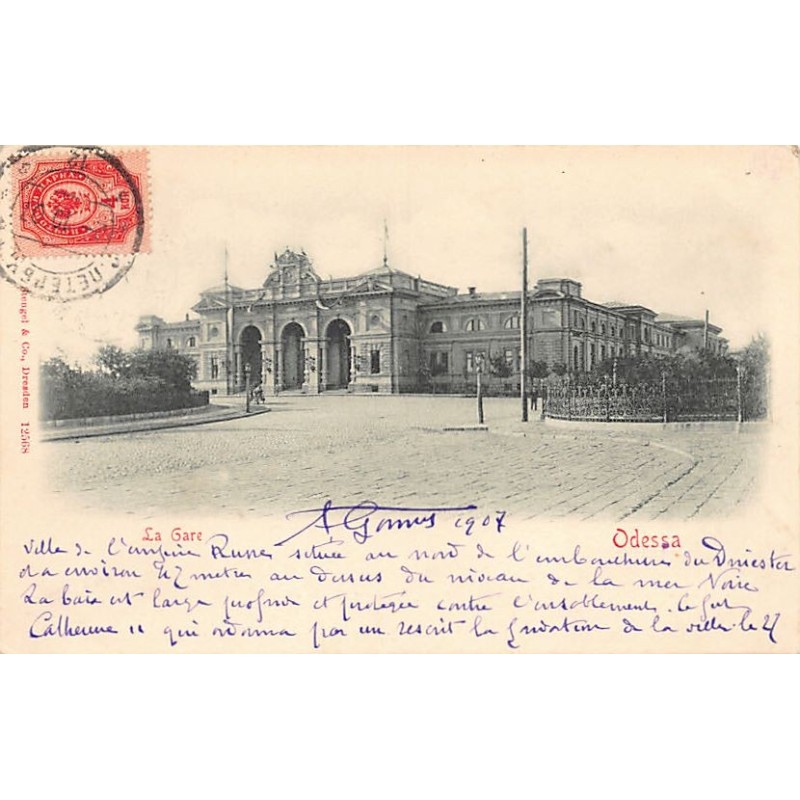 ПЕТЕРБУ
4
Stengel & Co., Dresden 12568
La Gare
Odessa
A Gomus 1907
Ville de l'empire Russe située au nord de l'embouchure du Dniester
et a environ 47 metres au dessus du niveau de la mer Noire
La baie est large profonde et protégée contre l'ensablement. Ce fut
Catherine II qui ordonna par un rescrit la fondation de la ville le 27